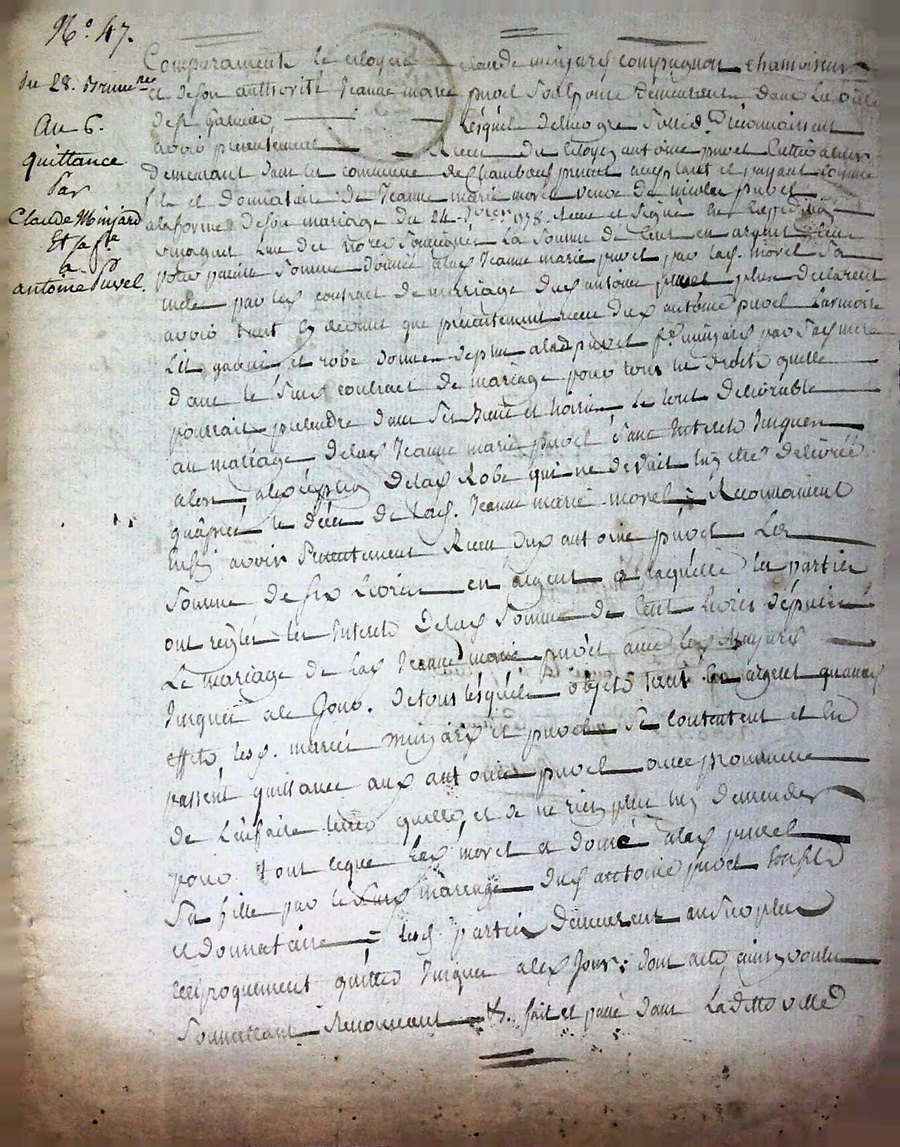 N.º 47.
du 28. Brum.re
An 6.
quittance
Par
Claude Minjard
Et sa f.e
a
antoine Puvel.
Comparament le citoyen Claude minjard compagnon chamoiseur
et de son authorité Jeanne marie puvel son Epouse Demeurant dans la ville
de
avoir présentement Reçu du Citoyen antoine puvel
demeurant dans la commune de Chambœuf présent acceptant et payant comme
fils et donnataire de Jeanne marie morel veuve de nicolas puvel
a la forme de son mariage du 24 Reçu et signé en Expédition
La somme de Cent en argent
pour pareille somme donnée a lad Jeanne marie puvel par lad. morel sa
mere par led contract de marriage dud antoine puvel plus declarent
avoir présentement reçu dud antoine puvel L'armoire
Lit garni et robe a lad puvel f.e minjard par sad mere
dans le susd contract de mariage pour tous les droits quelle
pourrait pretendre dans ses biens et hoirie le tout délivrable
au mariage de lad Jeanne marie puvel sans Interets Jusques
alors a lexception de lad Robe qui ne devait luy etre délivrée
quáprés le décès de lad. Jeanne marie morel Reconnaissent
aussy avoir présentement Reçu dud antoine puvel La
somme de six Livres en argent a laquelle les parties
ont reglés les Interets de lad somme de Cent Livres depuis
Le mariage de lad Jeanne marie puvel avec led minjard
Jusques a ce Jour. De tous lesquels objets tant En argent quen
effets les d. mariés minjard et puvel se contentent et en
passent quittance aud antoine puvel avec promesse
de l'en faire tenir quitte et de ne rien plus luy demander
pour tout ce que lad morel a donné a lad puvel
sa fille par le susd mariage dud antoine puvel son fils
et Donnataire lesd parties demeurent au surplus
reciproquement quittes Jusques a ced Jour: dont acte ainsy voulu
soumettant Renonçant &. fait et passé dans Laditte ville